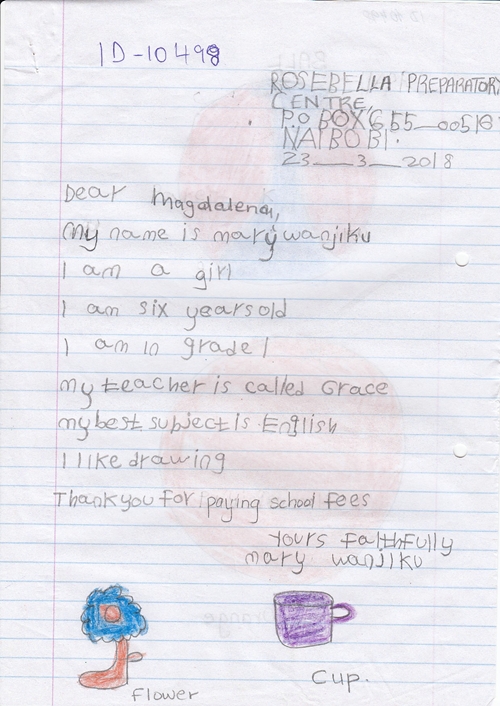 ID-10498
ROSEBELLA PREPARATORY
CENTRE,
P.O BOX 655__00516
NAIROBI.
23__3__2018
Dear Magdalena,
My name is mary wanjiku
I am a girl
I am six years old
I am in grade 1
my teacher is called Grace
my best subject is English
I like drawing
Thank you for paying school fees
Yours faithfully
mary wanjiku
Flower
Cup.